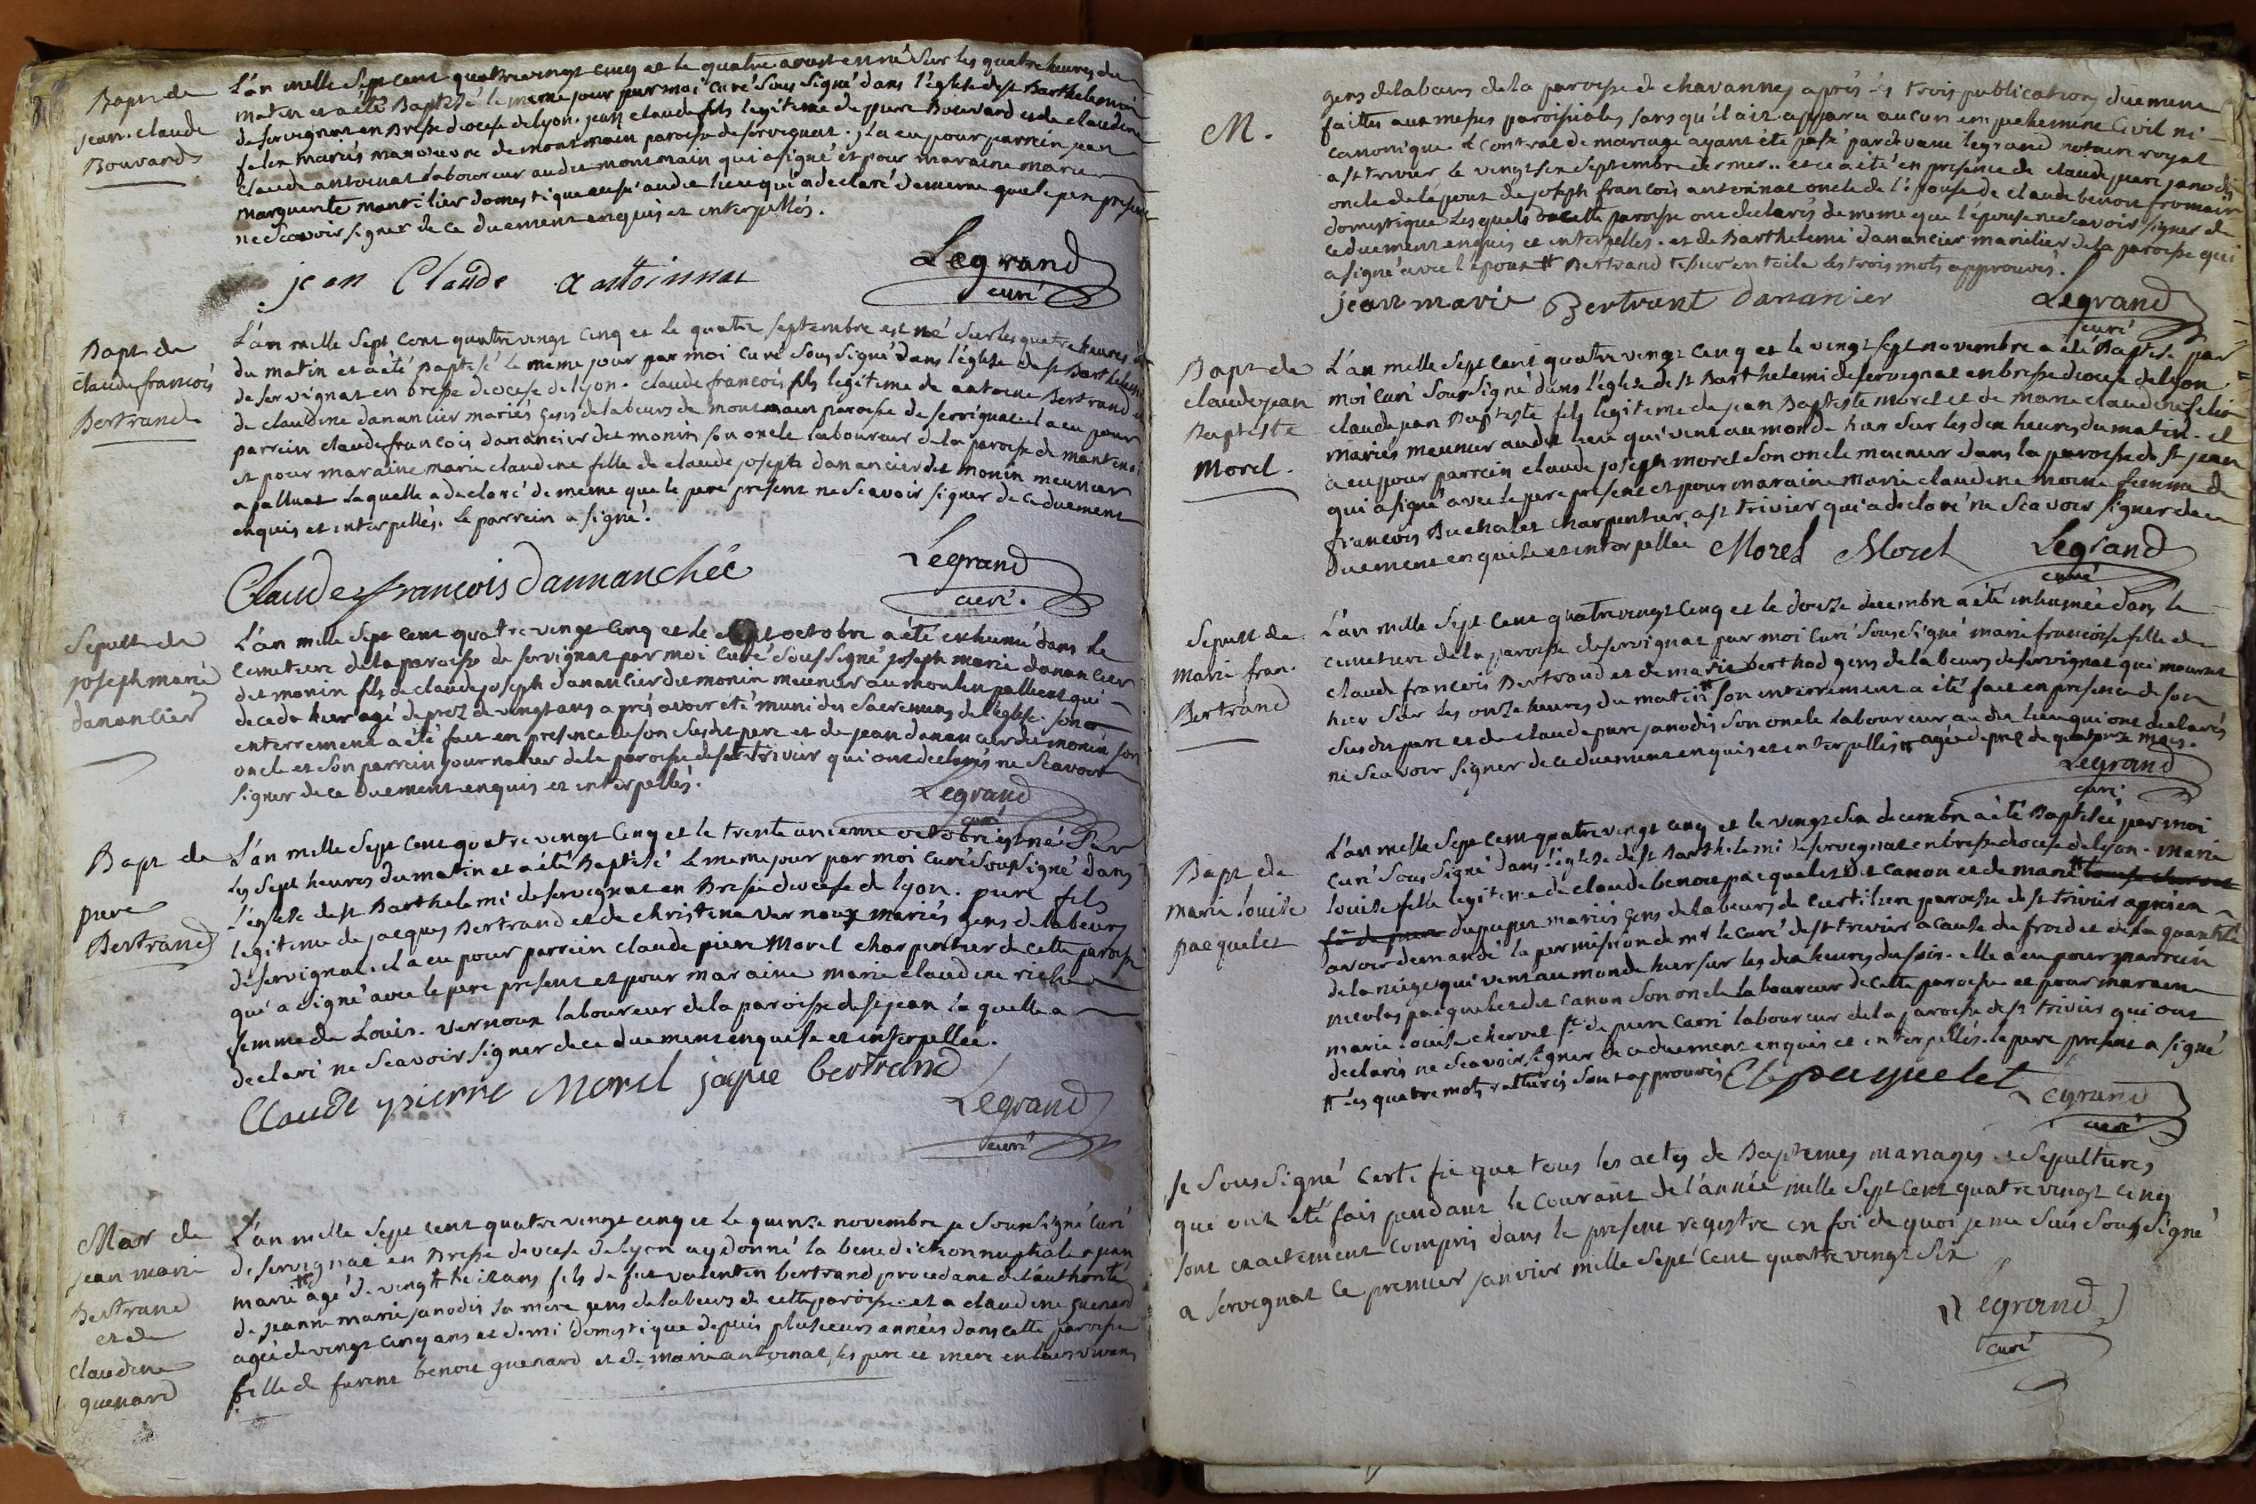 Bapt de
jean claude
Bouvard
L'an mille sept cent quatre vingt cinq et le quatre aoust est né sur les quatre heures du
matin et a été Baptisé le meme jour par moi curé sous signé dans l'église de st Barthelemi
de servignat en Bresse diocese de lyon. jean claude fils legitime de pierre Bouvard et de claudine
felix mariés manoeuvre de montmain paroisse de servignat. il a eu pour parrein jean
claude antoinat laboureur audit montmain qui a signé et pour maraine marie
marguerite montilier domestique aussi audit lieu qui a declaré de meme que le pere present
ne scavoir signer de ce duement enquis et interpellés.
jean Claude antoinnat
Legrand
curé
Bapt de
claude francois
Bertrand
L'an mille sept cent quatre vingt cinq et le quatre septembre est né sur les quatre heures
du matin et a été Baptisé le meme jour par moi curé sous signé dans l'église de st Barthelemi
de servignat en bresse diocese de lyon. claude francois fils legitime de antoine Bertrand et
de claudine danancier mariés gens de labeurs de montmain paroisse de servignat il a eu pour
parrein claude francois danancier dit monin son oncle laboureur de la paroisse de mantenai
et pour maraine marie claudine fille de claude joseph danancier dit monin meunier
a palluat laquelle a declaré de meme que le pere present ne scavoir signer de ce duement
enquis et interpellés. le parrein a signé.
Claude francois dannanchéé
Legrand
curé.
Sepult de
joseph marie
danancier
L'an mille sept cent quatre vingt cinq et le sept octobre a été enhumé dans le
cimetiere de la paroisse de servignat par moi curé sous signé joseph marie danancier
dit monin fils de claude joseph danancier dit monin meunier au moulin palluat qui
deceda hier agé de prez de vingt ans apres avoir été muni des sacremens de l'église. son
enterrement a été fait en presence de son susdit pere et de jean danancier dit monin son
oncle et son parrein journalier de la paroisse de st trivier qui ont declarés ne scavoir
signer de ce duement enquis et interpellés.
Legrand
curé
Bapt de
pierre
Bertrand
L'an mille sept cent quatre vingt cinq et le trente unieme octobre est né sur
les sept heures du matin et a été Baptisé le meme jour par moi curé sous signé dans
l'église de st Barthelemi de servignat en Bresse diocese de lyon. pierre fils
legitime de jacques Bertrand et de christine vernoux mariés gens de labeurs
de servignat. il a eu pour parrein claude pierre Morel charpentier de cette paroisse
qui a signé avec le pere present et pour maraine marie claudine richer
femme de Louis vernoux laboureur de la paroisse de st jean laquelle a
declaré ne scavoir signer de ce duement enquise et interpellée.
Claude pierre Morel jaque bertrand
Legrand
curé
Mar de
jean marie
Bertrand
et de
claudine
guenard
L'an mille sept cent quatre vingt cinq et le quinze novembre je sous signé curé
de servignat en Bresse diocese de lyon ay donné la benediction nuptiale a jean
marie # agé de vingt ans fils de feu valentin bertrand procedant de l'authorité
de jeanne marie janodis sa mere gens de labeurs de cette paroisse et a claudine guenard
agée de vingt cinq ans et demi domestique depuis plusieurs années dans cette paroisse
fille de furent benoit guenard et de marie antoinat ses pere et mere en leurs vivans
M.
gens de labeurs de la paroisse de chavannes après les trois publications duement
faittes aux messes paroissiales sans qu'il ait apparu aucun empechement civil ni
canonique et contrat de mariage ayant été passé par devant legrand notaire royal
a st trivier le vingt six septembre dernier.. et ce a été en presence de claude pierre janodis
oncle de l'époux de joseph francois antoinat oncle de l'épouse de claude benoit fromair
domestique lesquels de cette paroisse ont declarés de meme que l'épouse ne scavoir signer de
ce duement enquis et interpellés. et de Barthelemi danancier manilier de la paroisse qui
a signé avec l'époux # Bertrand tissier en toile les trois mots approuvés.
jean marie Bertrant Dananier
Legrand
curé
Bapt de
claude jean
Baptiste
Morel.
L'an mille sept cent quatre vingt cinq et le vingt sept novembre a été Baptisé par
moi curé sous signé dans l'église de st Barthelemi de servignat en bresse diocese de lyon
claude jean Baptiste fils legitime de jean Baptiste morel et de marie claudine felix
mariés meunier audit lieu qui vint au monde hier sur les dix heures du matin. il
a eu pour parrein claude joseph morel son oncle meunier dans la paroisse de st jean
qui a signé avec le pere present et pour maraine marie claudine moine femme de
francois Buchalet charpentier a st trivier qui a declaré ne scavoir signer de ce
duement enquise et interpellée Morel Morel
Legrand
curé
Sepult de
Marie fran.
Bertrand
L'an mille sept cent quatre vingt cinq et le douze decembre a été inhumée dans le
cimetiere de la paroisse de servignat par moi curé sous signé marie francoise fille de
claude francois Bertrand et de marie berthod gens de labeurs de servignat qui mourut
hier sur les onze heures du matin # son enterrement a été fait en presence de son
susdit pere et de claude pierre janodis son oncle laboureur au dit lieu qui ont declarés
ne scavoir signer de ce duement enquis et interpellés # agée de prez de quatorze mois.
Legrand
curé.
Bapt de
marie louise
pacquelet
L'an mille sept cent quatre vingt cinq et le vingt six decembre a été Baptisée par moi
curé sous signé dans l'église de st Barthelemi de servignat en bresse diocese de lyon. marie
louise fille legitime de claude benoit pacquelet dit canon et de marie # louise chervet
fe de pierre dupuper mariés gens de labeurs de curtil en paroisse de st trivier après en
avoir demandé la permission de mr le curé de st trivier a cause du froid et de la quantité
de la neige qui vint au monde hier sur les dix heures du soir. elle a eu pour parrein
nicolas pacquelet dit canon son oncle laboureur de cette paroisse et pour maraine
marie louise chervet fe de pierre carri laboureur de la paroisse de st trivier qui ont
declarés ne scavoir signer de ce duement enquis et interpellés. le pere present a signé
# les quatre mots raturés sont approuvés Cl paquelet
Legrand
curé
Je sous signé certifie que tous les actes de Baptemes mariages et sepultures
qui ont été fais pendant le courant de l'année mille sept cent quatre vingt cinq
sont exactement compris dans le present registre en foi de quoi je me suis sous signé
a servignat ce premier janvier mille sept cent quatre vingt six
Legrand
curé